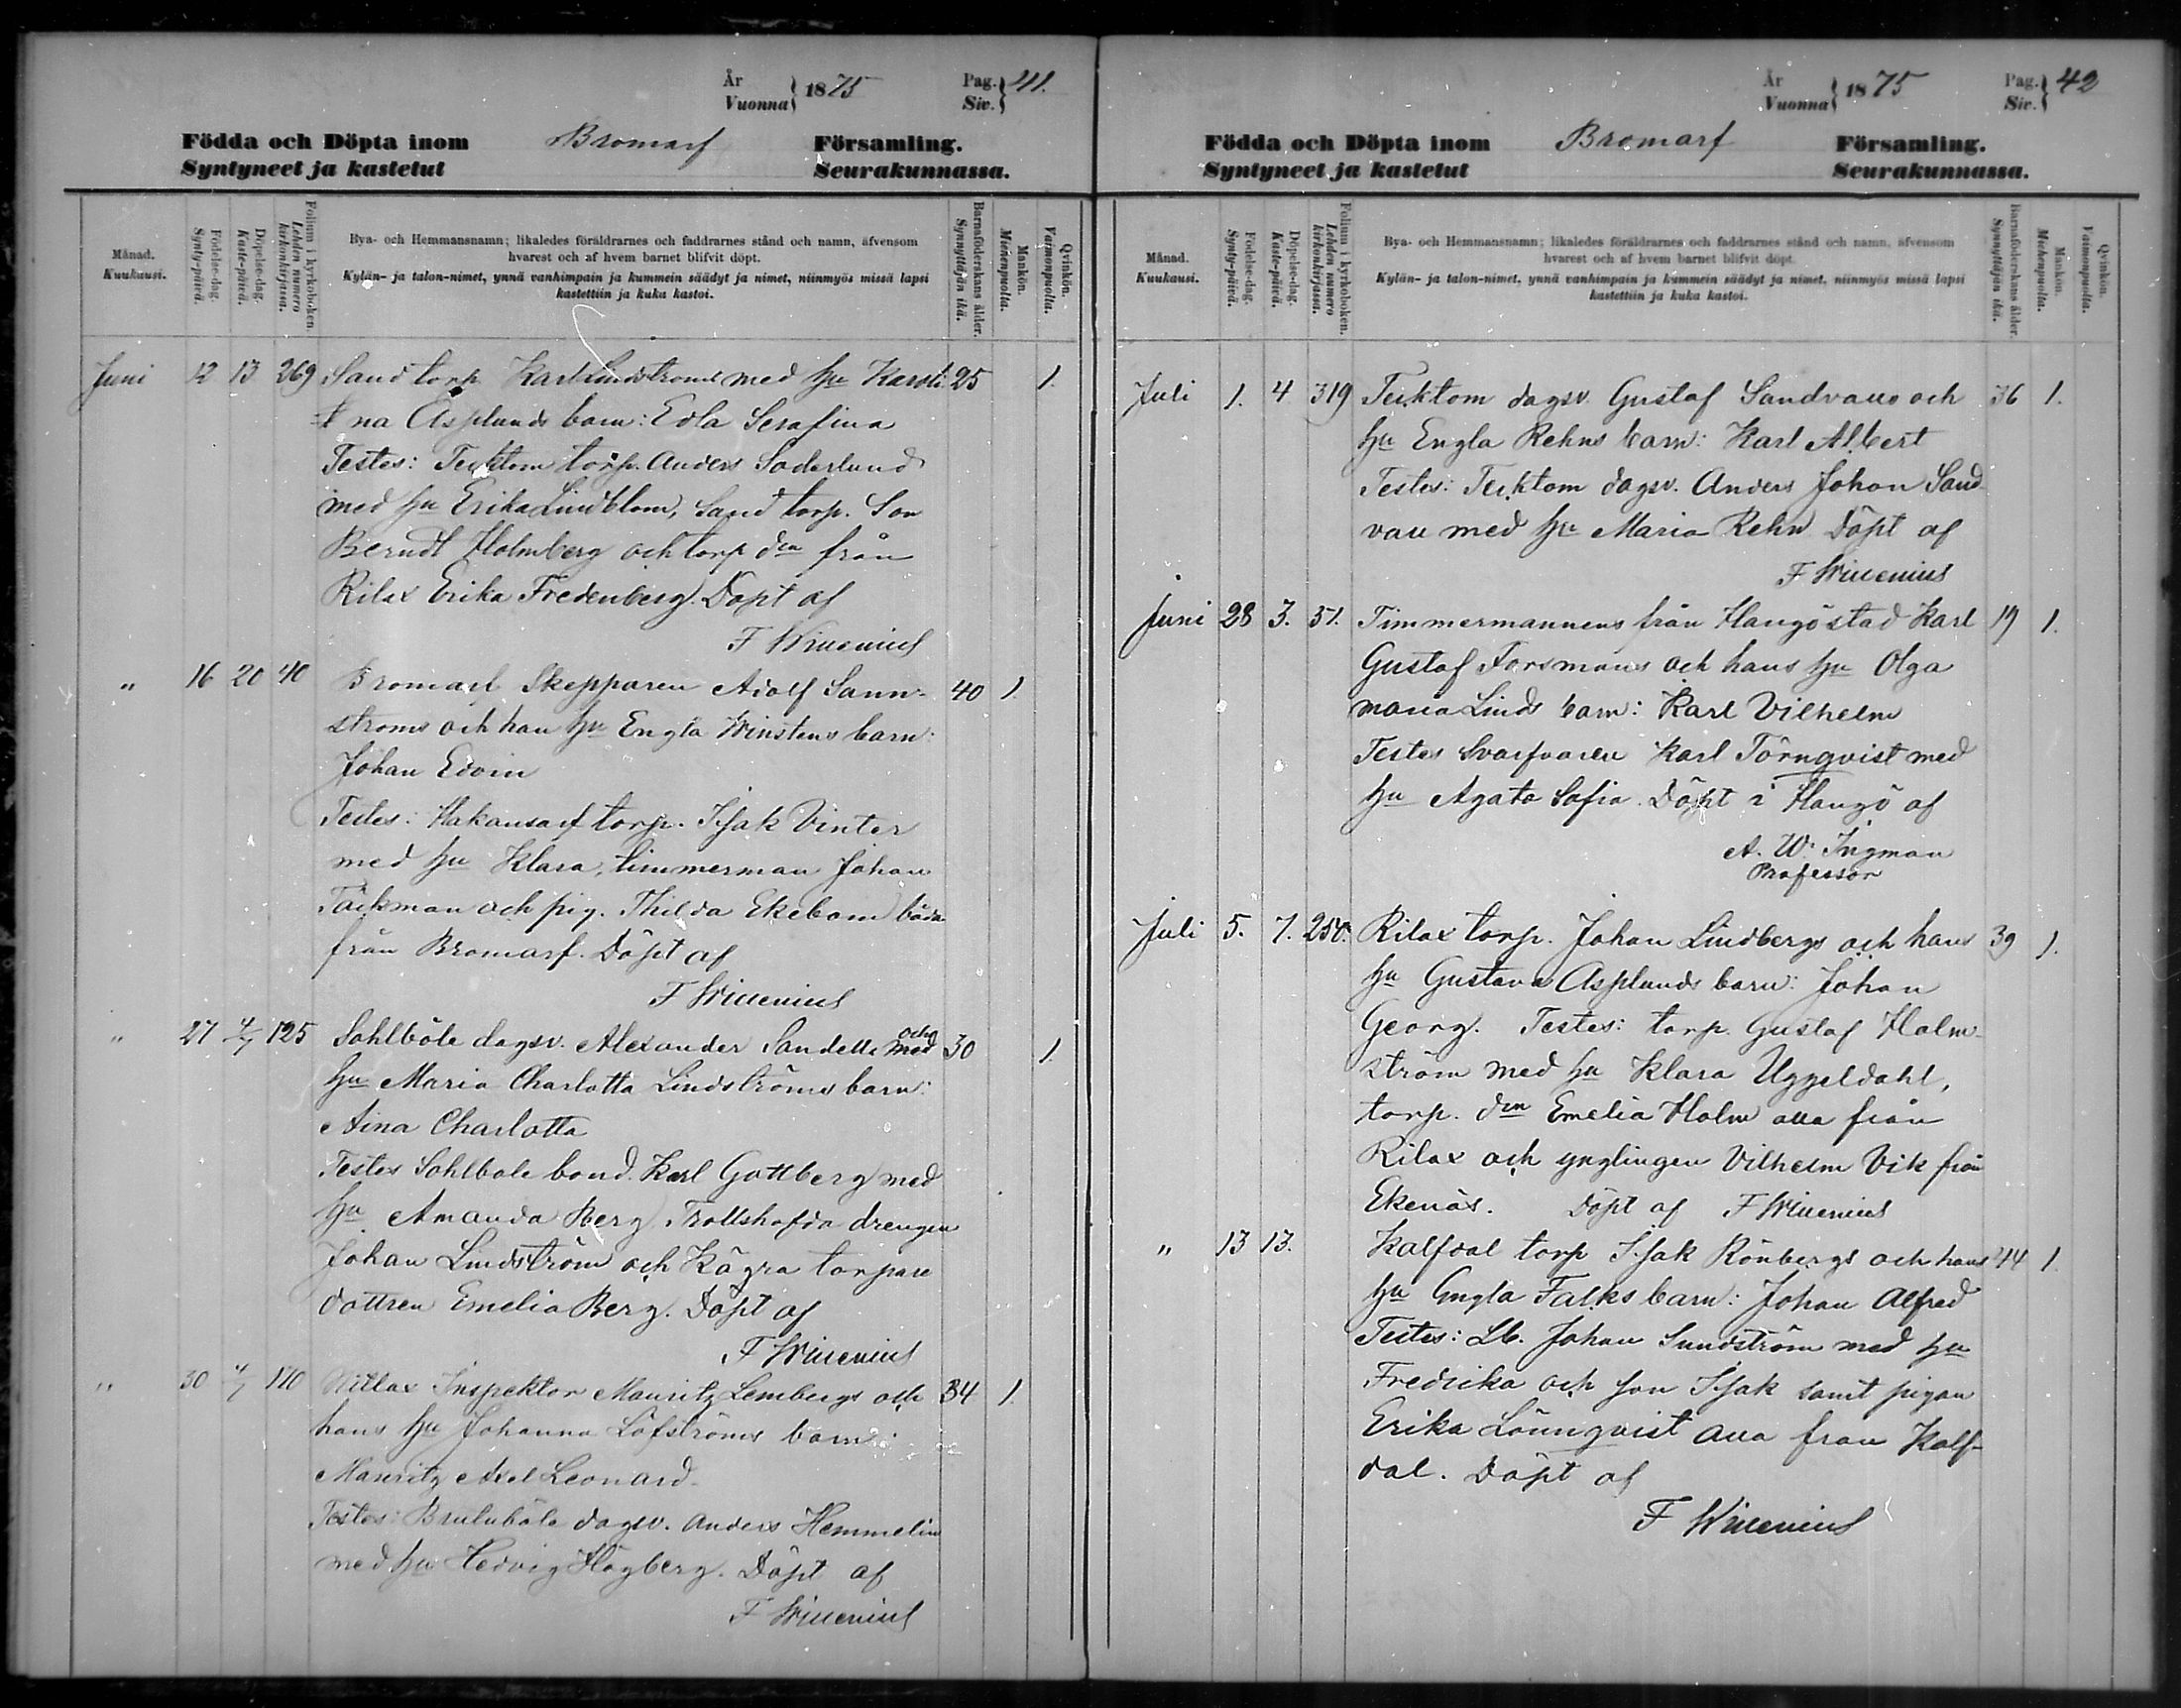 År
Vuonna } 1875 Pag.
Siv. } 41.
Födda och Döpta inom Bromarf Församling.
Syntyneet ja kastetut Seurakunnassa.
Månad.
Kuukausi.
Födelse-dag.
Synty-päivä.
Döpelse-dag.
Kaste-päivä.
Folium i kyrkoboken.
Lehden numero
kirkonkirjassa.
Bya- och Hemmansnamn; likaledes föräldrarnes och faddrarnes stånd och namn, äfvensom
hvarest och af hvem barnet blifvit döpt.
Kylän- ja talon-nimet, ynnä vanhimpain ja kummein säädyt ja nimet, niinmyös missä lapsi
kastettiin ja kuka kastoi.
Barnaföderskans ålder.
Synnyttäjän ikä.
Mankön.
Miehenpuolta.
Qvinkön.
Vaimonpuolta.
Juni 12 13 269 Sand torp. Karl Lindstroms med hu Karoli 25 1.
na Asplunds barn: Edla Serafina
Testes: Tecktom torp. Anders Soderlund
med hu Erika Lindblom, Sand torp. Son
Berndt Holmberg och torp den från
Rilax Erika Fredenberg. Döpt af
F Winenius
" 16 20 40 Bromarf Skepparen Adolf Sann- 40 1.
stroms och han hu Engla Winstens barn:
Johan Edvin
Testes: Hakansarf torp. Isak Vinter
med hu Klara, timmerman Johan
Täckman och pig. Thilda Ekebom båda
från Bromarf. Döpt af
F Winenius
" 27 4/7 125 Sahlböle dagsv. Alexander Sandells och med 30 1.
hu Maria Charlotta Lindströms barn:
Aina Charlotta
Testes Sohlbole bond. Karl Gottberg med
hu Amanda Berg, Trollshofda drengen
Johan Lindström och Kägra torpare
dottren Emelia Berg. Döpt af
F Winenius
" 30 4/7 170 Nitlax Inspektor Mauritz Lembergs och 34 1.
hans hu Johanna Löfströms barn:
Mauritz Axel Leonard.
Testes: Bruluböle dagsv. Anders Hemmelin
med hu Hedvig Högberg. Döpt af
F Winenius
År
Vuonna } 1875 Pag.
Siv. } 42
Födda och Döpta inom Bromarf Församling.
Syntyneet ja kastetut Seurakunnassa.
Månad.
Kuukausi.
Födelse-dag.
Synty-päivä.
Döpelse-dag.
Kaste-päivä.
Folium i kyrkoboken.
Lehden numero
kirkonkirjassa.
Bya- och Hemmansnamn; likaledes föräldrarnes och faddrarnes stånd och namn, äfvensom
hvarest och af hvem barnet blifvit döpt.
Kylän- ja talon-nimet, ynnä vanhimpain ja kummein säädyt ja nimet, niinmyös missä lapsi
kastettiin ja kuka kastoi.
Barnaföderskans ålder.
Synnyttäjän ikä.
Mankön.
Miehenpuolta.
Qvinkön.
Vaimonpuolta.
Juli 1. 4 319 Tecktom dagsv. Gustaf Sandvaus och 36 1.
hu Engla Rehns barn: Karl Albert
Testes: Tecktom dagsv. Anders Johan Sand
vau med hu Maria Rehn Döpt af
F Winenius
Juni 28 3. 51. Timmermannens från Hangö stad Karl 19 1.
Gustaf Forsmans och hans hu Olga
maria Linds barn: Karl Vilhelm
Testes Svarfvaren Karl Törnqvist med
hu Agata Sofia. Döpt i Hangö af
A. W. Ingman
Professor
Juli 5. 7. 250. Rilax torp. Johan Lindbergs och hans 39 1.
hu Gustava Asplunds barn: Johan
Georg. Testes: torp. Gustaf Holm-
ström med hu Klara Uggeldahl,
torp. den Emelia Holm alla från
Rilax och ynglingen Vilhelm Vik från
Ekenäs. Döpt af F Winenius
" 13 13. Kalfdal torp Isak Rönbergs och hans 44 1
hu Engla Falks barn: Johan Alfred
Testes: Lb. Johan Sundström med hu
Fredrika och son Isak samt pigan
Erika Lönnqvist alla från Kalf-
dal. Döpt af
F Winenius